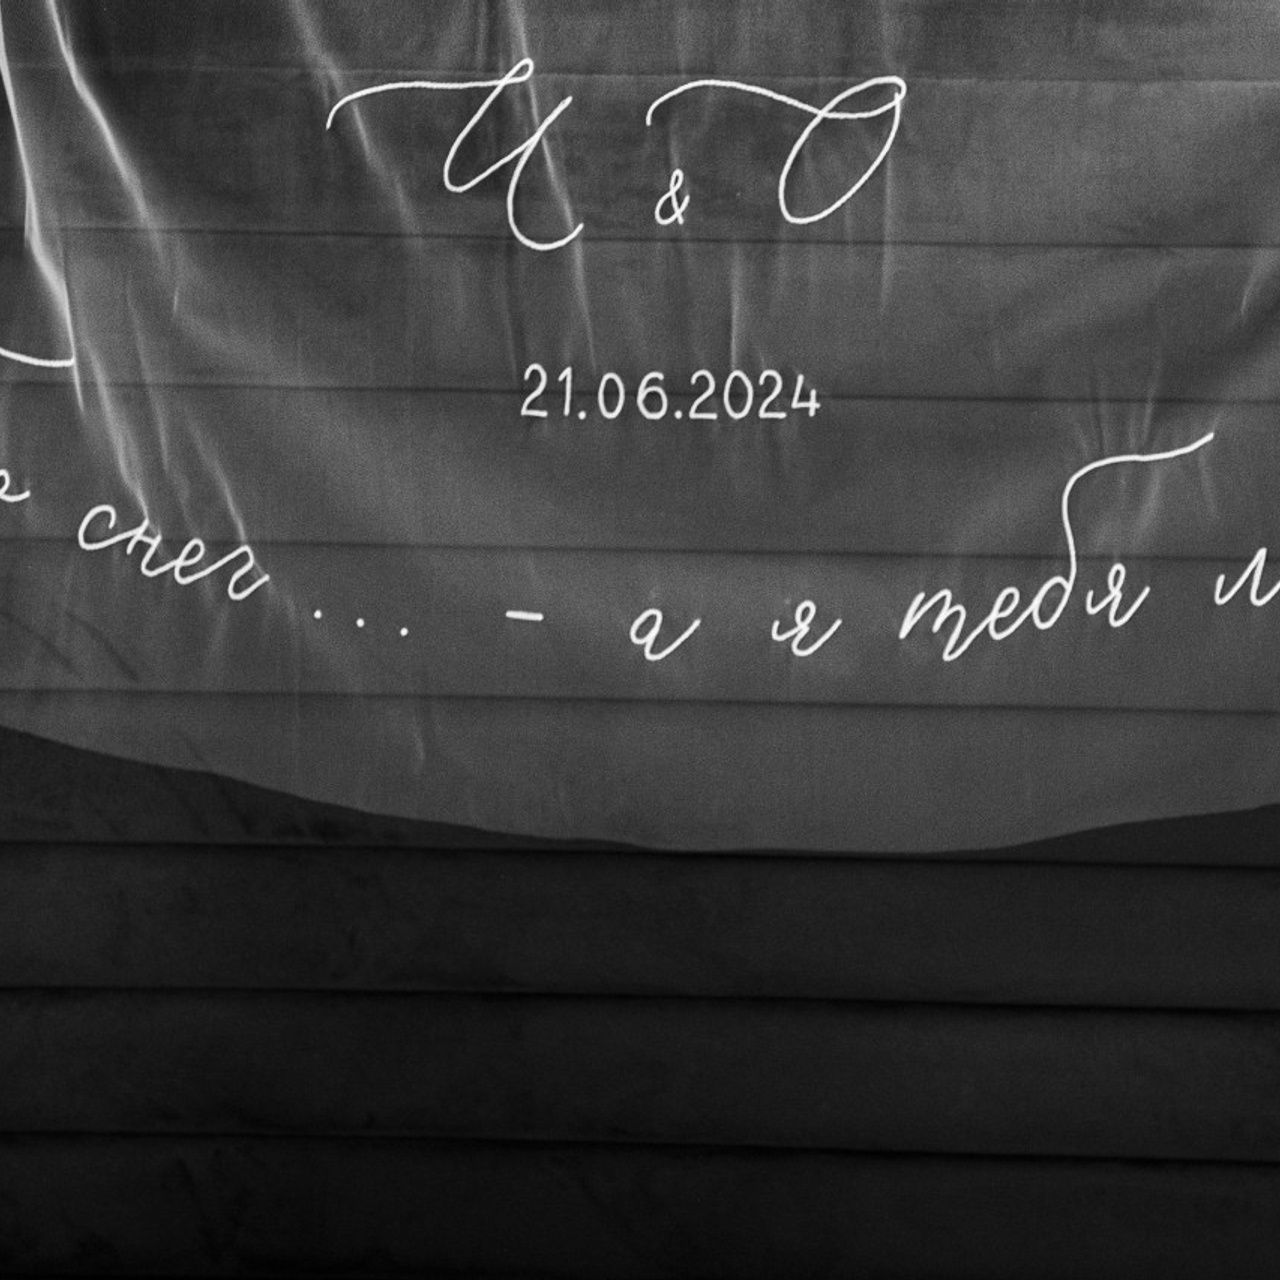 И & О
21.06.2024
снег... - а я тебя